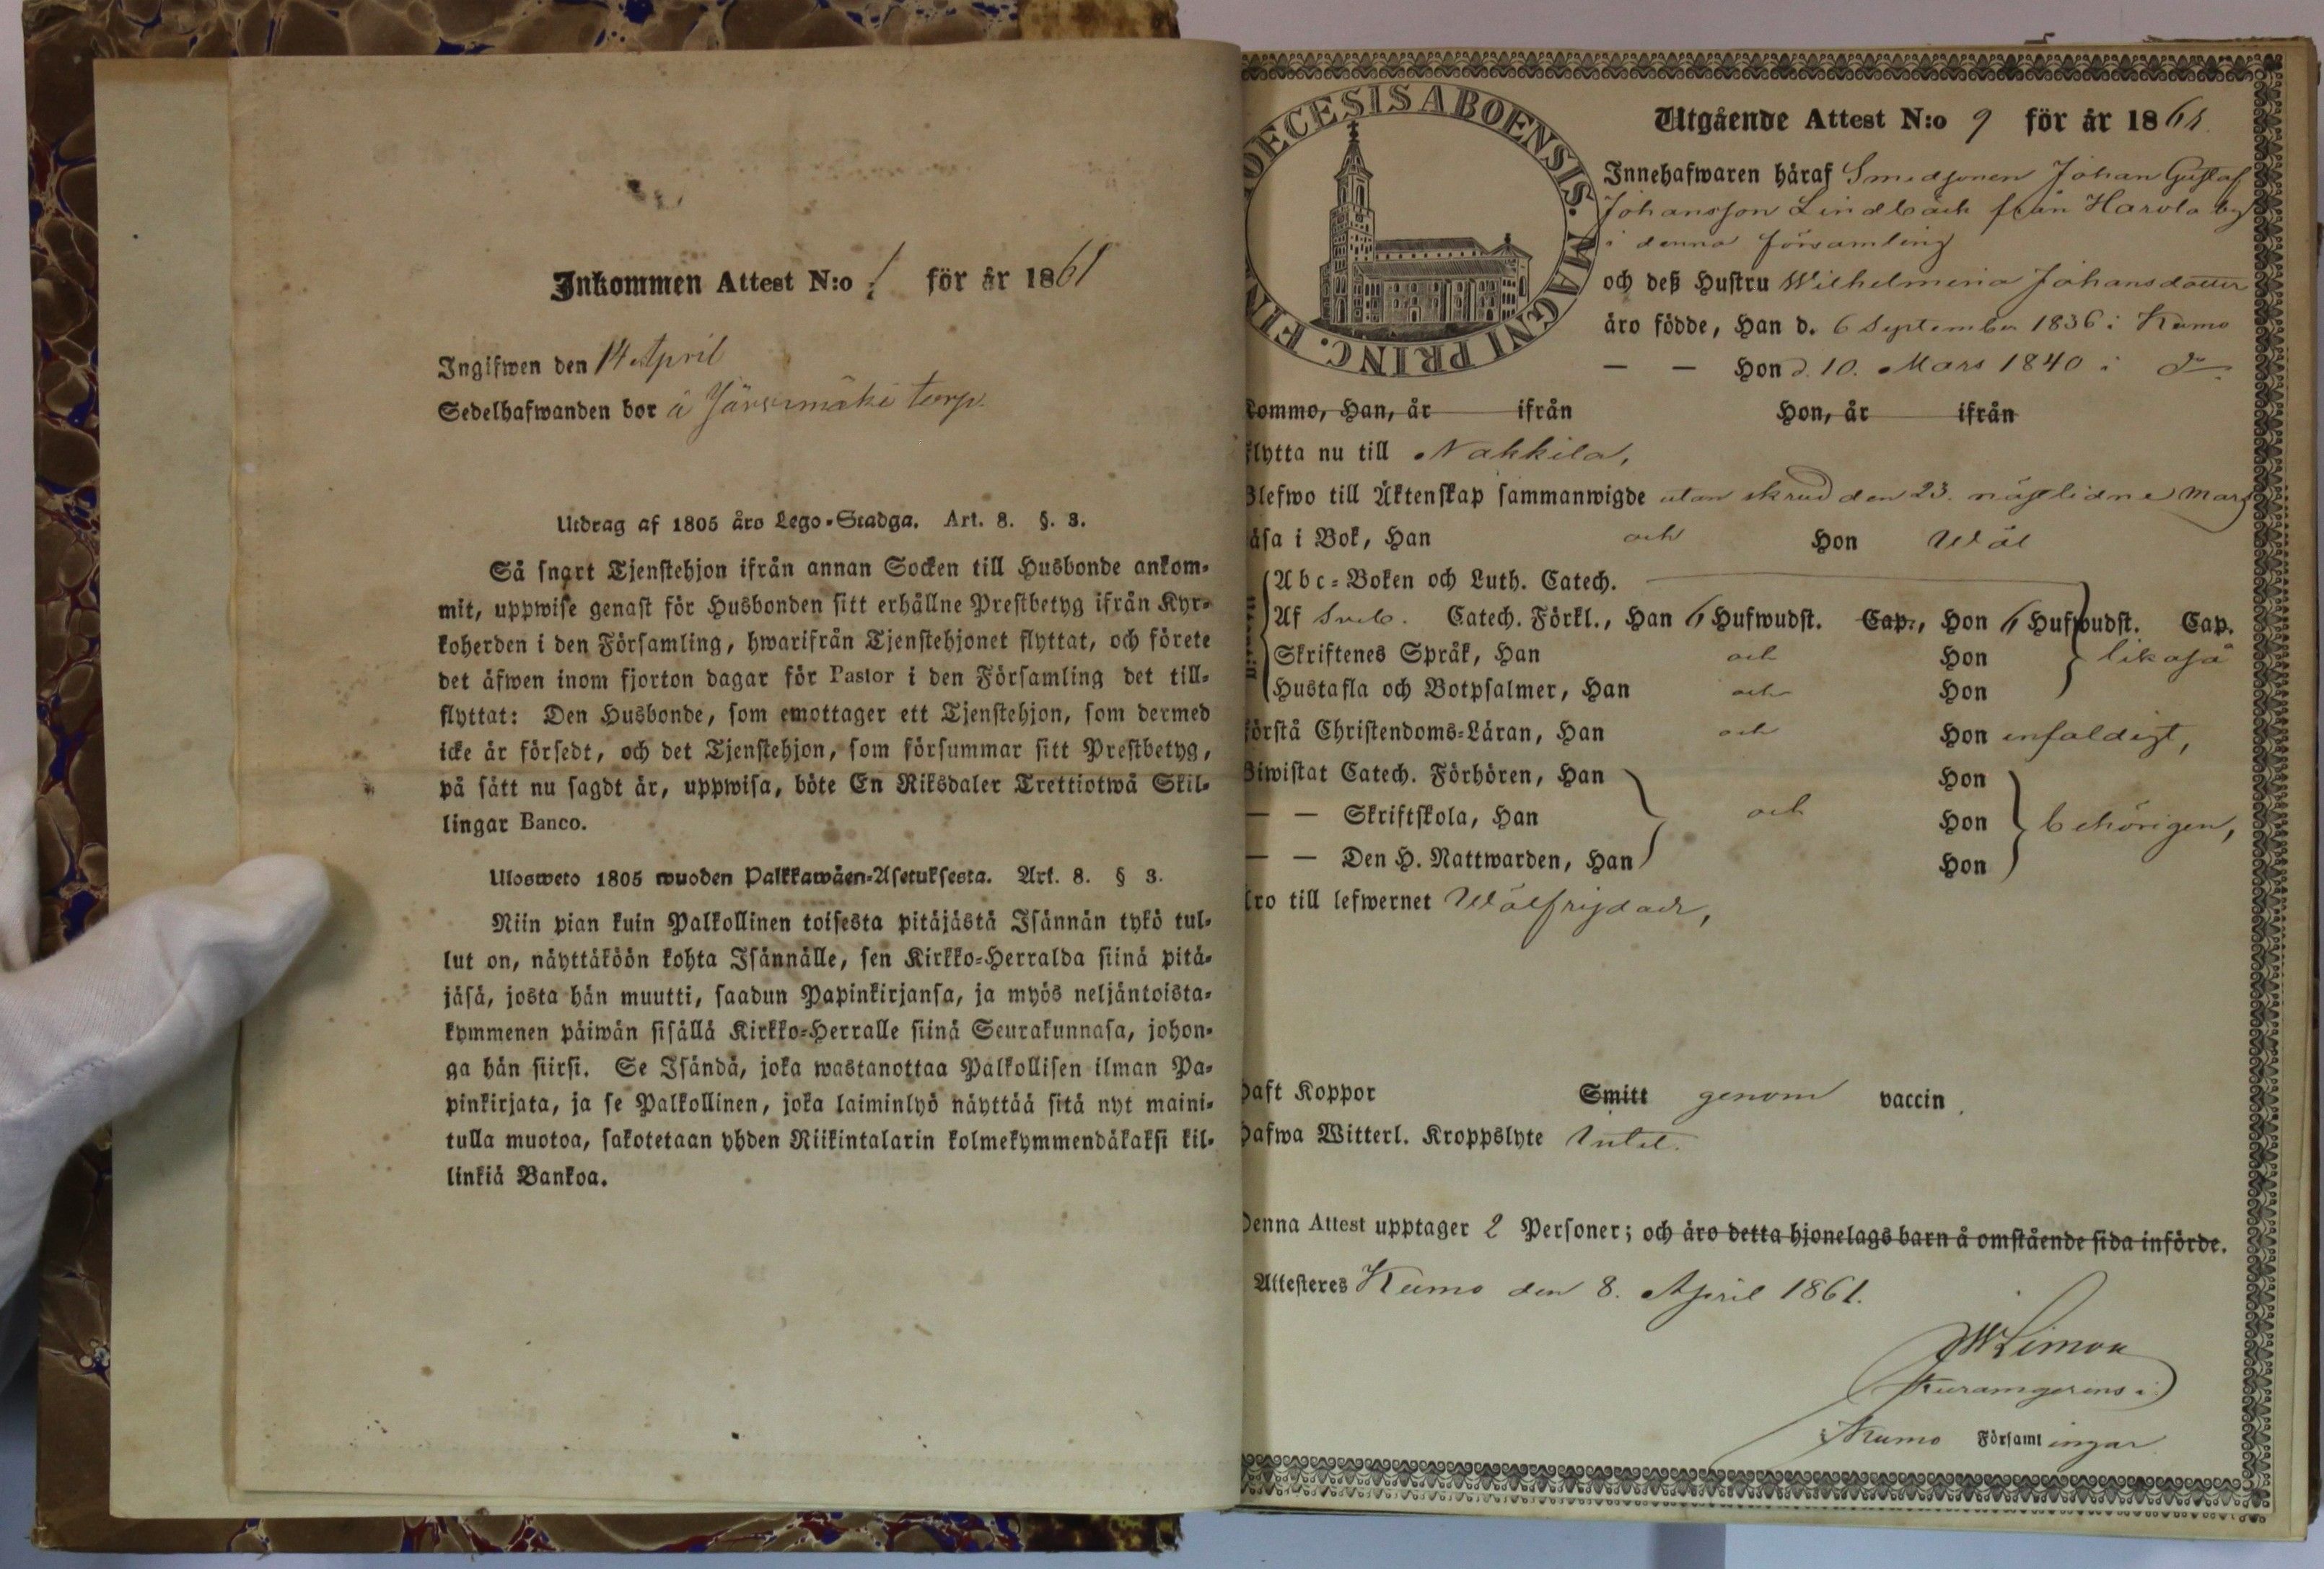 Inkommen Attest N:o 1 för år 1861
Ingifwen den 14 April
Sedelhafwanden bor å Järvimäki torp.
Utdrag af 1805 års Lego-Stadga. Art. 8. §. 3.
Så snart Tjenstehjon ifrån annan Socken till Husbonde ankom-
mit, uppwise genast för Husbonden sitt erhållne Prestbetyg ifrån Kyr-
koherden i den Församling, hwarifrån Tjenstehjonet flyttat, och förete
det äfwen inom fjorton dagar för Pastor i den Församling det till-
flyttat: Den Husbonde, som emottager ett Tjenstehjon, som dermed
icke är försedt, och det Tjenstehjon, som försummar sitt Prestbetyg,
på sätt nu sagdt är, uppwisa, böte En Riksdaler Trettiotwå Skil-
lingar Banco.
Ulosweto 1805 wuoden Palkkawäen-Asetuksesta. Art. 8. § 3.
Niin pian kuin Palkollinen toisesta pitäjästä Isännän tykö tul-
lut on, näyttäköön kohta Isännälle, sen Kirkko-Herralda siinä pitä-
jäsä, josta hän muutti, saadun Papinkirjansa, ja myös neljäntoista-
kymmenen päiwän sisällä Kirkko-Herralle siinä Seurakunnasa, johon-
ga hän siirsi. Se Isändä, joka wastanottaa Palkollisen ilman Pa-
pinkirjata, ja se Palkollinen, joka laiminlyö näyttää sitä nyt maini-
tulla muotoa, sakotetaan yhden Riikintalarin kolmekymmendäkaksi kil-
linkiä Bankoa.
DECESIS ABOENSIS. MAGNI PRINC. FIN
Utgående Attest N:o 9 för år 1861.
Innehafwaren häraf Smedsonen Johan Gustaf
Johansson Lindbäck från Harola by
i denna församling
och deß Hustru Wilhelmina Johansdotter
äro födde, Han d. 6 September 1836 i Kumo
— — Hon d. 10. Mars 1840 i do.
kommo, Han, år ifrån Hon, år ifrån
flytta nu till Nakkila,
Blefwo till Äktenskap sammanwigde utan skrud den 23. nästlidne Mars
läsa i Bok, Han och Hon Wäl
Abc-Boken och Luth. Catech.
Af Sveb. Catech. Förkl., Han 6 Hufwudst. Cap., Hon 6 Hufwudst. Cap.
Skriftenes Språk, Han och Hon likaså
Hustafla och Botpsalmer, Han och Hon
förstå Christendoms-Läran, Han och Hon enfaldigt,
Biwistat Catech. Förhören, Han Hon
— — Skriftskola, Han och Hon behörigen,
— — Den H. Nattwarden, Han Hon
äro till lefwernet Wälfrejdade,
haft Koppor Smitt genom vaccin
hafwa Witterl. Kroppslyte Intet.
Denna Attest upptager 2 Personer; och äro detta hjonelags barn å omstående sida införde.
Attesteres Kumo den 8. April 1861.
JW Limon
Kuramgerens i
Kumo Församlingar